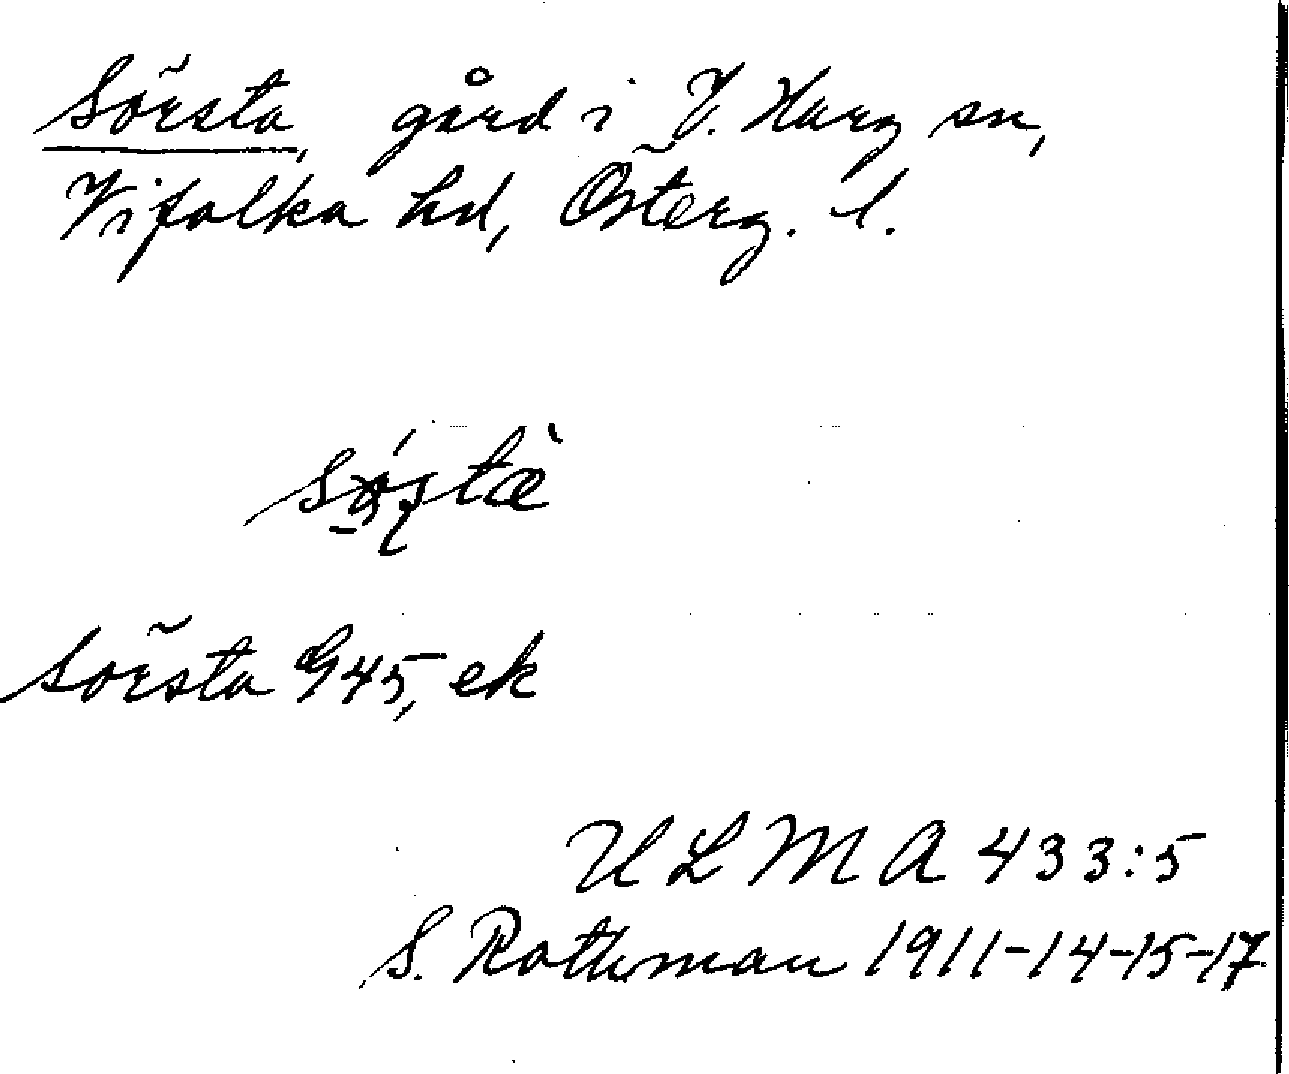 Sörsta, gård i V. Harg sn,
Vifolka hd, Österg. l.
Sörsta 945, ek
ULMA 433:5
S. Rothman 1911-14-15-17